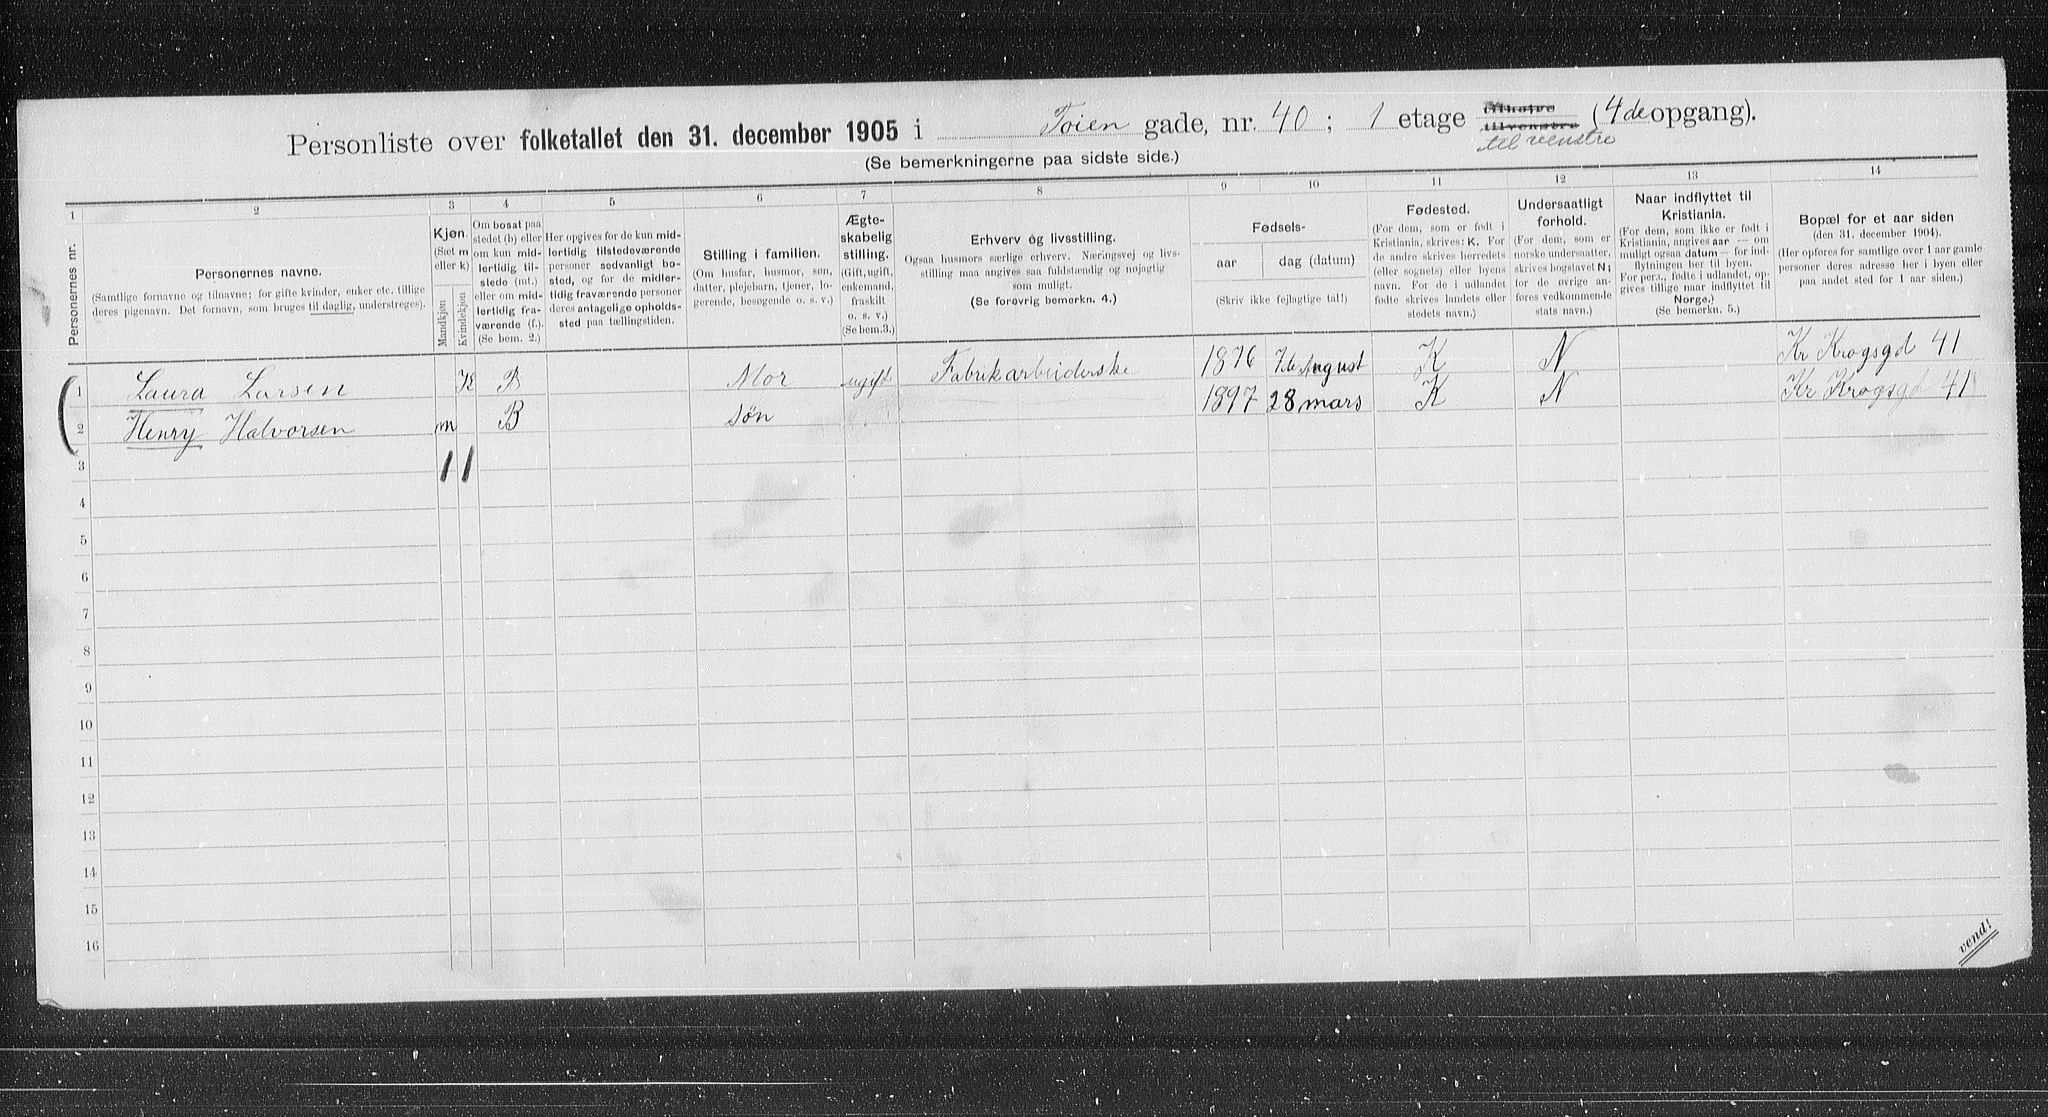 Personliste over folketallet den 31. december 1905 i Toien gade, nr. 40 ; 1 etage tilhøire tilvenstre (4de opgang).
til venstre
(Se bemerkningerne paa sidste side.)
1 2 3 4 5 6 7 8 9 10 11 12 13 14
Personernes nr.
Personernes navne.
(Samtlige fornavne og tilnavne; for gifte kvinder, enker etc. tillige
deres pigenavn. Det fornavn, som bruges til daglig, understreges).
Kjøn.
(Sæt m
eller k)
Mandkjøn
Kvindekjøn
Om bosat paa
stedet (b) eller
om kun mid-
lertidig til-
stede (mt.)
eller om mid-
lertidig fra-
værende (f.).
(Se bem. 2.)
Her opgives for de kun mid-
lertidig tilstedeværende
personer sedvanligt bo-
sted, og for de midler-
tidig fraværende personer
deres antagelige opholds-
sted paa tællingstiden.
Stilling i familien.
(Om husfar, husmor, søn,
datter, plejebarn, tjener, lo-
gerende, besøgende o. s. v.)
Ægte-
skabelig
stilling.
(Gift, ugift,
enkemand,
fraskilt
o. s. v.)
(Se bem. 3.)
Erhverv og livsstilling.
Ogsaa husmors særlige erhverv. Næringsvej og livs-
stilling maa angives saa fuldstændig og nøjagtig
som muligt.
(Se forøvrig bemerkn. 4.)
Fødsels-
aar
dag (datum)
(Skriv ikke fejlagtige tal!)
Fødested.
(For dem, som er født i
Kristiania, skrives: K. For
de andre skrives herredets
(eller sognets) eller byens
navn. For de i udlandet
fødte skrives landets eller
stedets navn.)
Undersaatligt
forhold.
(For dem, som er
norske undersaatter,
skrives bogstavet N;
for de øvrige an-
føres vedkommende
stats navn.)
Naar indflyttet til
Kristiania.
(For dem, som ikke er født i
Kristiania, angives aar — om
muligt ogsaa datum — for ind-
flytningen her til byen.
For pers., fødte i udlandet, op-
gives tillige naar indflyttet til
Norge.)
(Se bemerkn. 5.)
Bopæl for et aar siden
(den 31. december 1904).
(Her opføres for samtlige over 1 aar gamle
personer deres adresse her i byen eller
paa andet sted for 1 aar siden.)
1 Laura Larsen K B Mor ugift Fabrikarbeiderske 1876 7de August K N Kr Krogsgd 41
2 Henry Halvorsen m B søn 1897 28 mars K N Kr Krogsgd 41
3 1 1
4
5
6
7
8
9
10
11
12
13
14
15
16
vend!